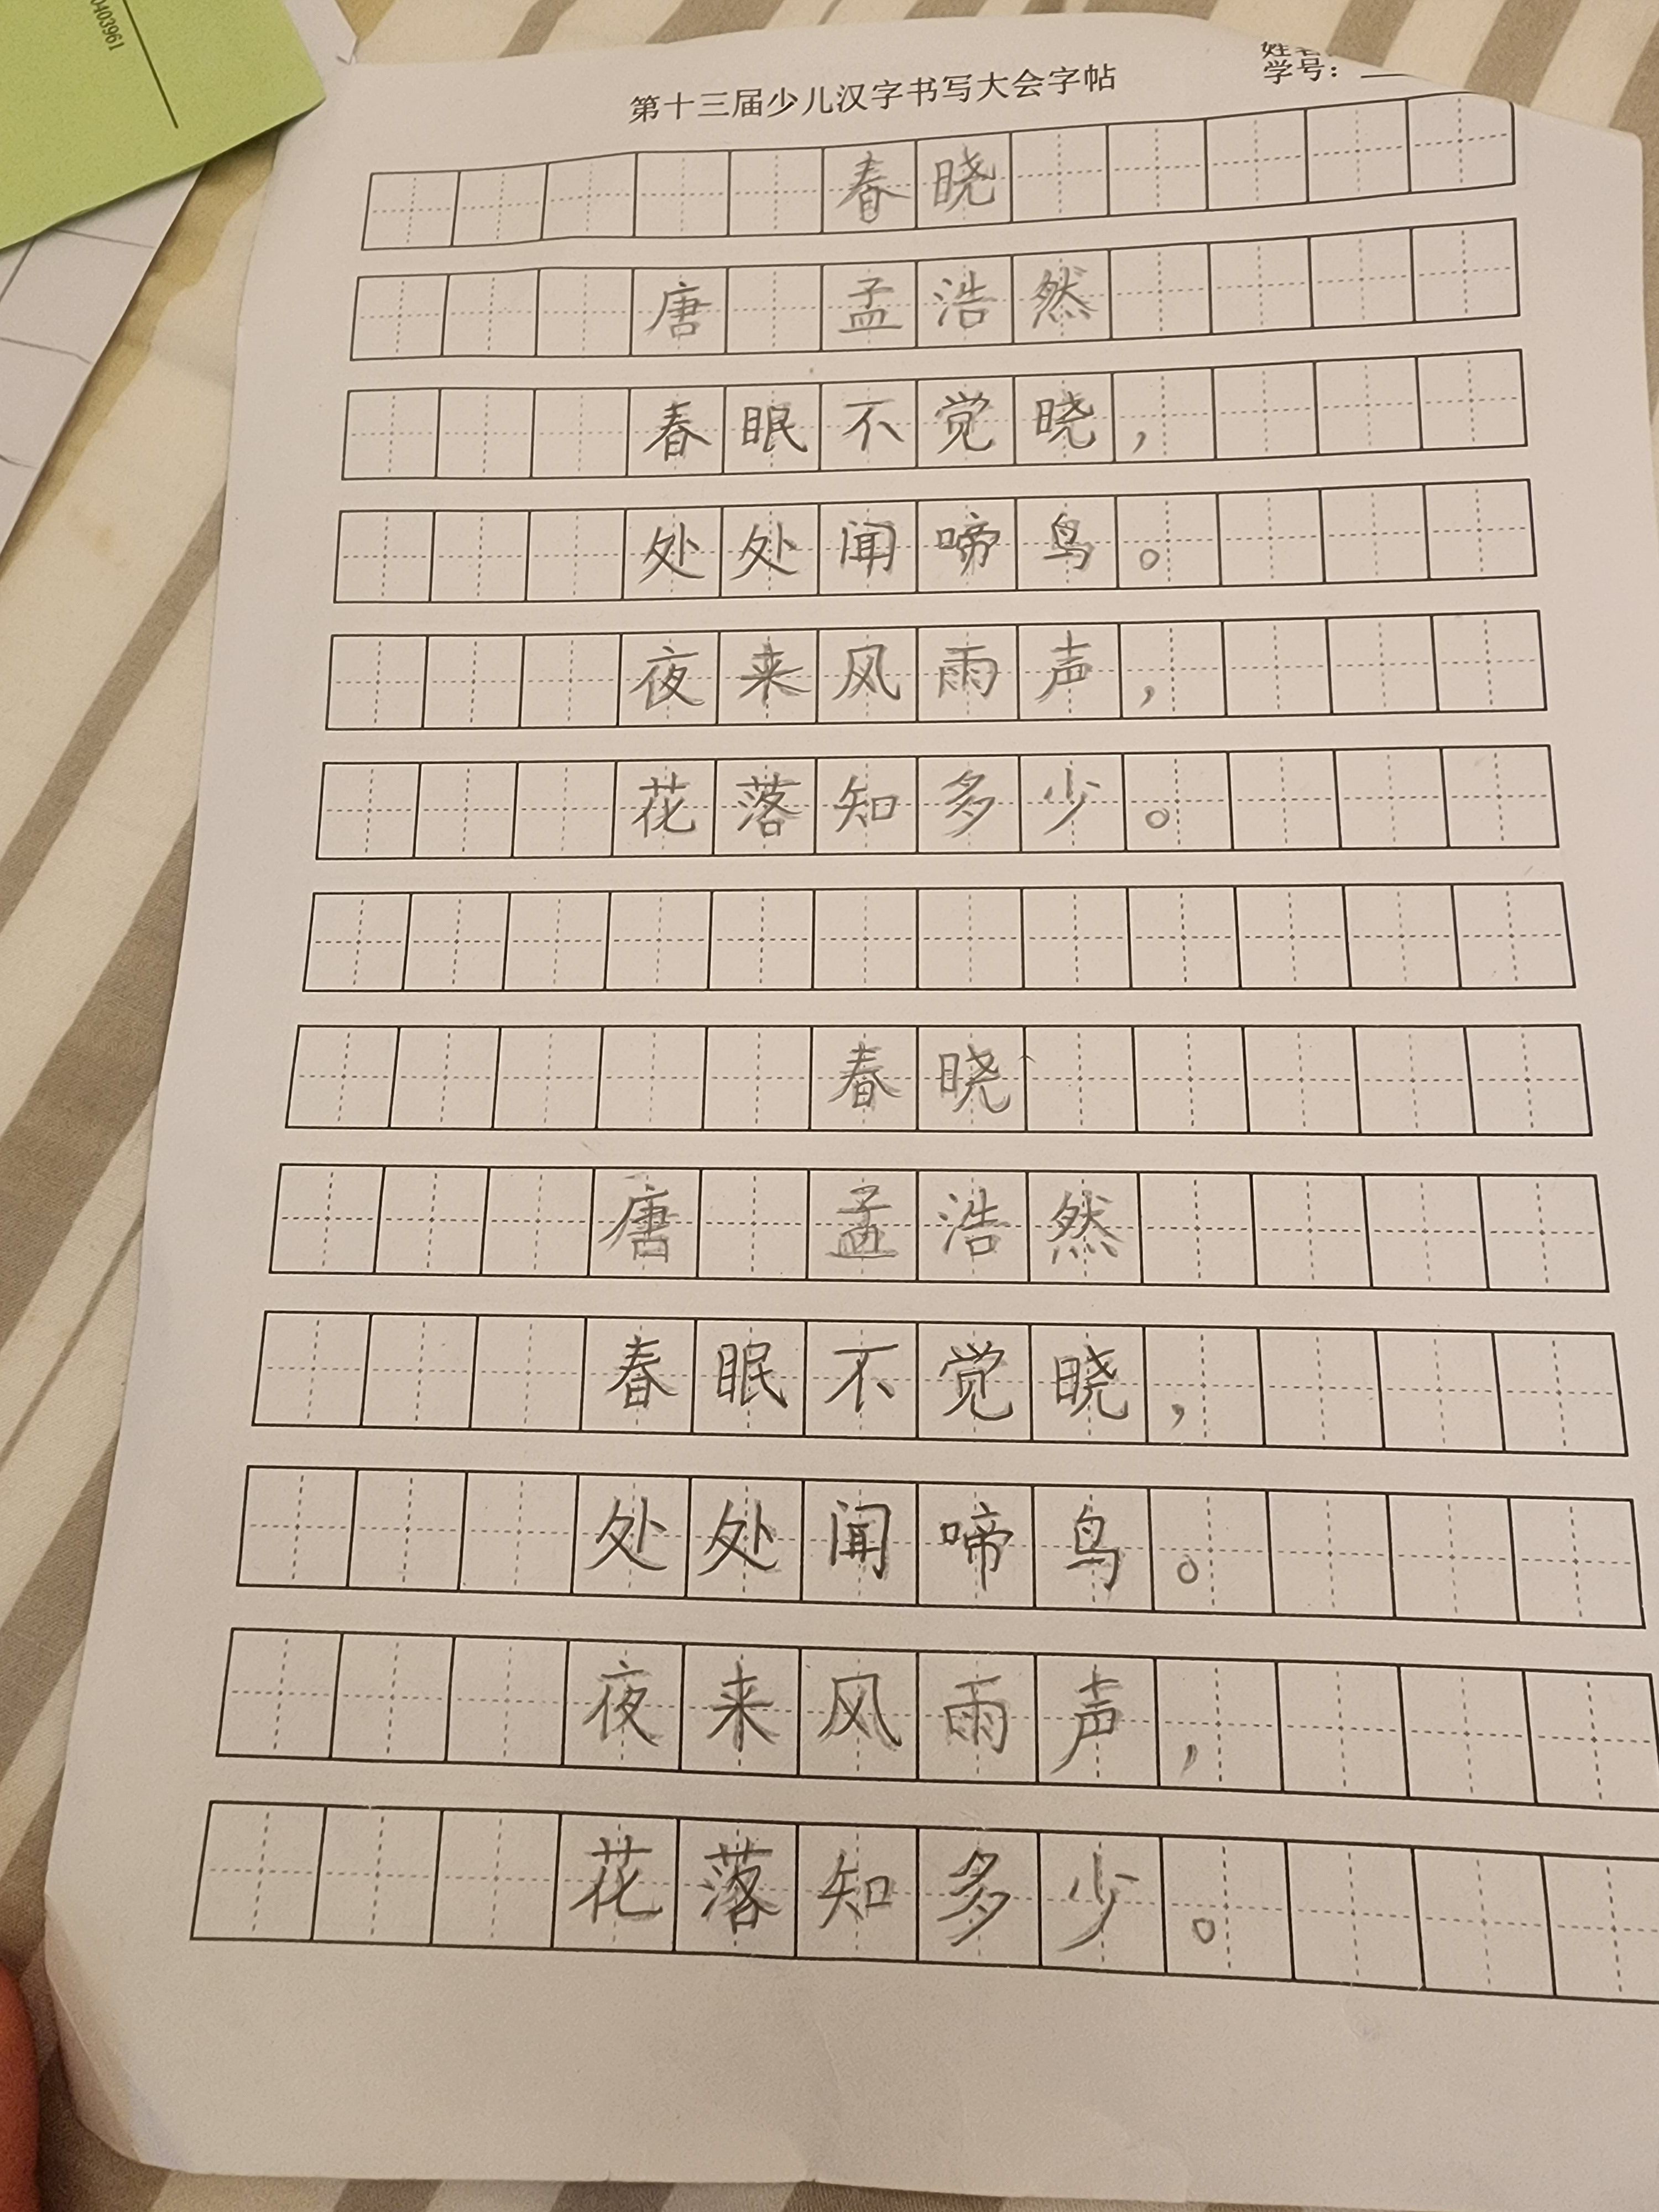 0403961
第十三届少儿汉字书写大会字帖
姓名:
学号:
春晓
唐 孟浩然
春眠不觉晓，
处处闻啼鸟。
夜来风雨声，
花落知多少。
春晓
唐 孟浩然
春眠不觉晓，
处处闻啼鸟。
夜来风雨声，
花落知多少。